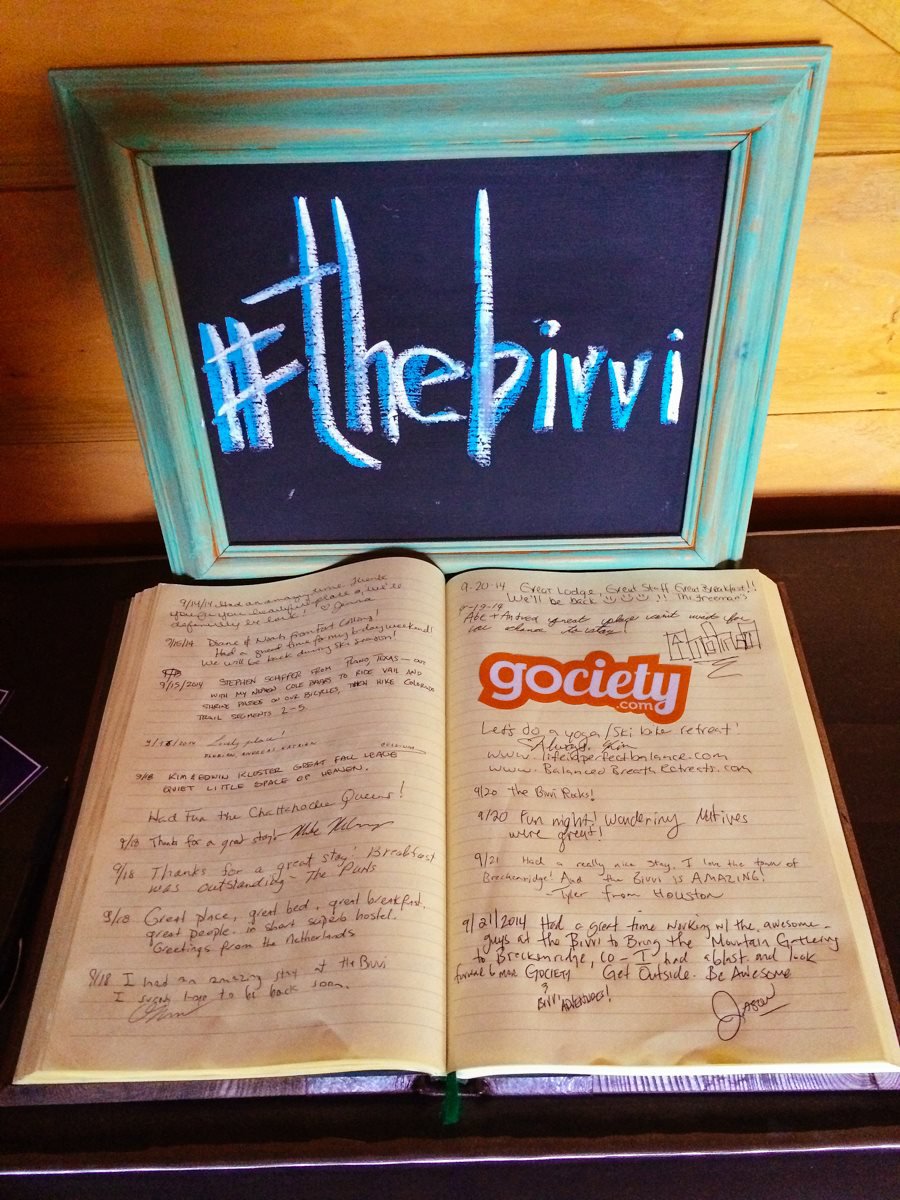 #thebivvi
9/14/14 Had an amazing time. Thank
you for your beautiful place &, we'll
definitely be back! ♡ Jenna
9/15/14 Diane & Noah from Fort Collins!
Had a great time for my b-day weekend!
We will be back during ski season!
9/15/2014 STEPHEN SCHAFFER FROM PLANO, TEXAS – OUT
WITH MY NEPHEW COLE BAKER TO RIDE VAIL AND
SHRINE PASSES ON OUR BICYCLES, THEN HIKE COLORADO
TRAIL SEGMENTS 2-5.
9/18/2014 Lovely place!
9/18 KIM & EDWIN KLUSTER GREAT FALL LEAVE
QUIET LITTLE SPACE OF HEAVEN.
Had Fun the Chattahoochee Queens!
9/18 Thanks for a great stay! Mike
9/18 Thanks for a great stay! Breakfast
was outstanding – The Paris
9/18 Great place, great bed, great breakfast,
great people. in short superb hostel.
Greetings from the Netherlands
9/18 I had an amazing stay at the Bivvi
I surely hope to be back soon.
9-20-14 Great Lodge, Great Staff Great Breakfast!!
We'll be back !! The Freeman's
9-19-14
Abe + Andrea great place can't wait for
gociety
.com
Let's do a yoga/ski bike retreat!
Always, Kim
www.lifeisperfectbalance.com
www.BalancedBreathRetreats.com
9/20 The Bivvi Rocks!
9/20 Fun night! Wandering Natives
were great!
9/21 Had a really nice stay. I love the town of
Breckenridge! And the Bivvi is AMAZING!
-Tyler from Houston
9/21/2014 Had a great time working w/ the awesome
guys at the Bivvi to Bring the Mountain Gathering
to Breckenridge, CO – I had a blast and look
forward to more GOCIETY Get Outside. Be Awesome
& BIVVI ADVENTURES!
Jason